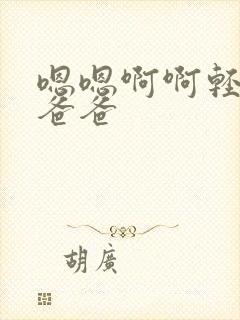 嗯嗯啊啊輕
爸爸
胡廣